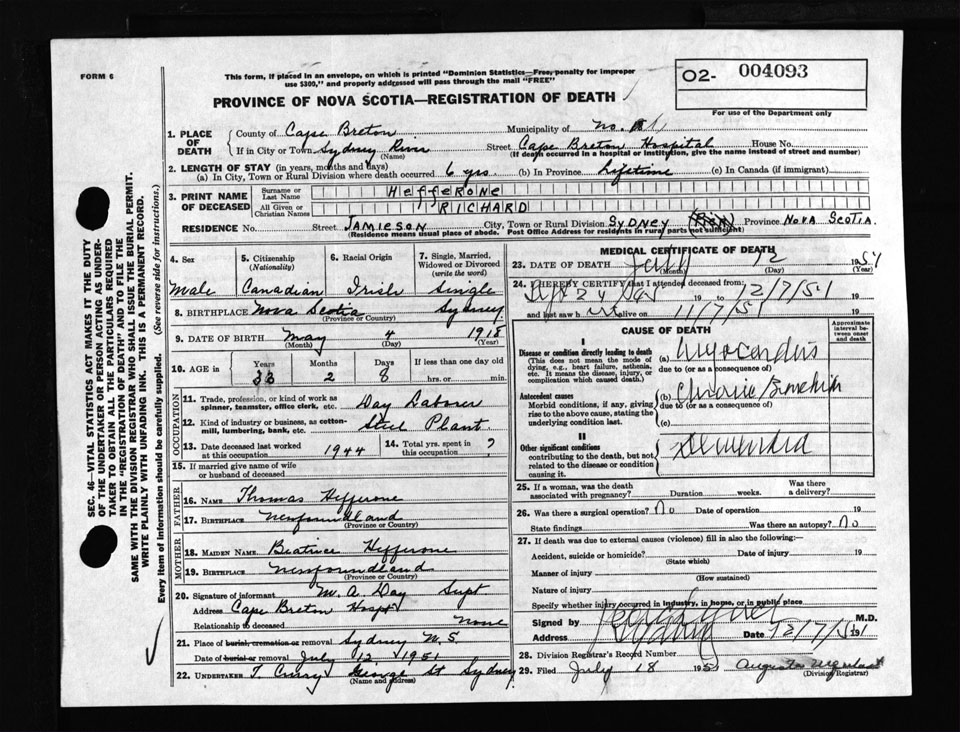 FORM 6
This form, if placed in an envelope, on which is printed "Dominion Statistics—Free, penalty for improper
use $300," and properly addressed will pass through the mail "FREE"
O2- 004093
For use of the Department only
PROVINCE OF NOVA SCOTIA—REGISTRATION OF DEATH
1. PLACE OF DEATH
County of Cape Breton Municipality of No.
If in City or Town Sydney River Street Cape Breton Hospital House No.
(Name) (If death occurred in a hospital or institution, give the name instead of street and number)
2. LENGTH OF STAY (in years, months and days)
(a) In City, Town or Rural Division where death occurred 6 yrs. (b) In Province Lifetime (c) In Canada (if immigrant)
3. PRINT NAME OF DECEASED
Surname or Last Name HeffeRONe
All Given or Christian Names RICHARD
RESIDENCE No. Street JAMIESON City, Town or Rural Division SYDNEY Province NOVA SCOTIA
(Residence means usual place of abode. Post Office Address for residents in rural parts not sufficient)
4. Sex
Male
5. Citizenship
(Nationality)
Canadian
6. Racial Origin
Irish
7. Single, Married, Widowed or Divorced
(write the word)
Single
8. BIRTHPLACE Nova Scotia Sydney
(Province or Country)
9. DATE OF BIRTH May 4 1918
(Month) (Day) (Year)
10. AGE in
Years Months Days If less than one day old
33 2 8 hrs. or min.
OCCUPATION
11. Trade, profession, or kind of work as spinner, teamster, office clerk, etc. Day Laborer
12. Kind of industry or business, as cotton-mill, lumbering, bank, etc. Steel Plant
13. Date deceased last worked at this occupation 1944
14. Total yrs. spent in this occupation ?
15. If married give name of wife or husband of deceased
FATHER
16. NAME Thomas Hefferone
17. BIRTHPLACE Newfoundland
(Province or Country)
MOTHER
18. MAIDEN NAME Beatrice Hefferone
19. BIRTHPLACE Newfoundland
(Province or Country)
20. Signature of informant M. A. Day Supt
Address Cape Breton Hospt
Relationship to deceased None
21. Place of burial, cremation or removal Sydney N. S.
Date of burial or removal July 12 1951
22. UNDERTAKER T. Curry George St Sydney
(Name and address)
MEDICAL CERTIFICATE OF DEATH
23. DATE OF DEATH July 12 1951
(Month) (Day)
24. I HEREBY CERTIFY that I attended deceased from:
19 to 12/7/51 19
and last saw h alive on 11/7/51 19
CAUSE OF DEATH
Approximate interval between onset and death
I
Disease or condition directly leading to death
(This does not mean the mode of dying, e.g., heart failure, asthenia, etc. It means the disease, injury, or complication which caused death.)
(a)
due to (or as a consequence of)
Antecedent causes
Morbid conditions, if any, giving rise to the above cause, stating the underlying condition last.
(b) Chronic Bronchitis
due to (or as a consequence of)
(c)
II
Other significant conditions
contributing to the death, but not related to the disease or condition causing it.
25. If a woman, was the death associated with pregnancy? Duration weeks. Was there a delivery?
26. Was there a surgical operation? No Date of operation 19
State findings Was there an autopsy? No
27. If death was due to external causes (violence) fill in also the following:—
Accident, suicide or homicide? Date of injury 19
(State which)
Manner of injury
(How sustained)
Nature of injury
Specify whether injury occurred in industry, in home, or in public place
Signed by M.D.
Address Date 12/7/51 19
28. Division Registrar's Record Number
29. Filed July 18 1951
(Division Registrar)
SEC. 46—VITAL STATISTICS ACT MAKES IT THE DUTY
OF THE UNDERTAKER OR PERSON ACTING AS UNDER-
TAKER TO OBTAIN ALL THE PARTICULARS REQUIRED
IN THE "REGISTRATION OF DEATH" AND TO FILE THE
SAME WITH THE DIVISION REGISTRAR WHO SHALL ISSUE THE BURIAL PERMIT.
WRITE PLAINLY WITH UNFADING INK. THIS IS A PERMANENT RECORD.
Every item of information should be carefully supplied. (See reverse side for instructions.)